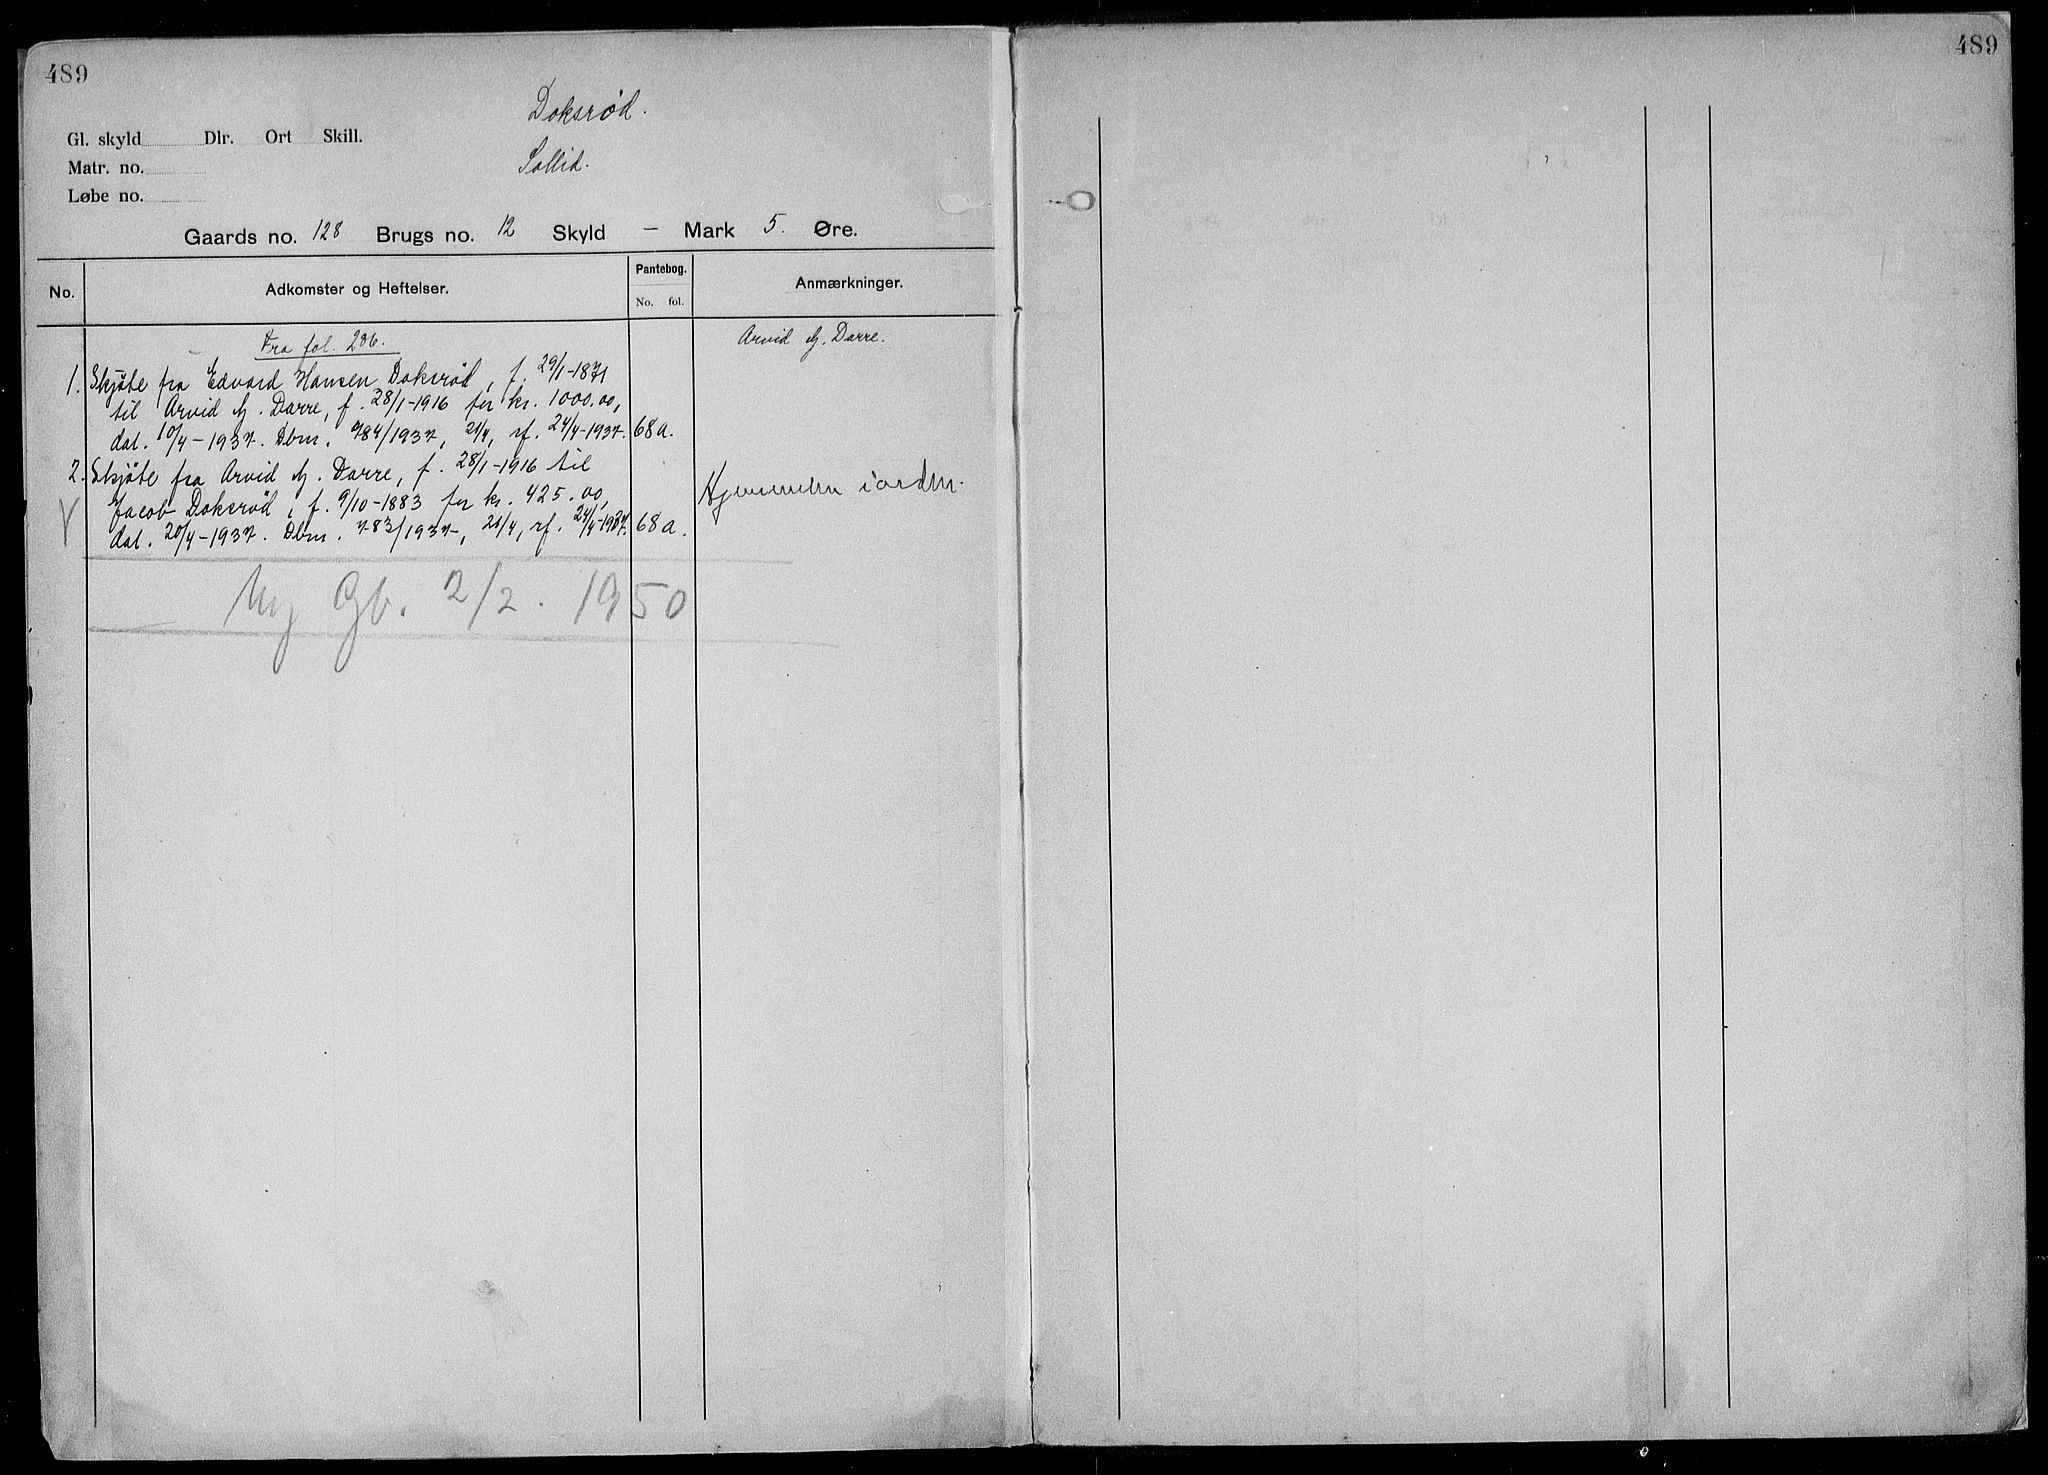 489
489
Doksrød.
Gl. skyld Dlr. Ort Skill.
Sollid.
Matr. no.
Løbe no.
Gaards no. 128 Brugs no. 12 Skyld – Mark 5. Øre.
No. Adkomster og Heftelser. Pantebog. No. fol. Anmærkninger.
Fra fol. 206. Arvid G. Darre.
1. Skjøte fra Edvard Hansen Doksrød, f. 29/1-1871
til Arvid G. Darre, f. 28/1-1916 for kr. 1000.00,
dat. 10/4-1937. Dbm. 784/1937, 21/4, rf. 24/4-1937. 68a.
2. Skjøte fra Arvid G. Darre, f. 28/1-1916 til
Jacob Doksrød, f. 9/10-1883 for kr. 425.00, Hjemmelen i orden.
dat. 20/4-1937. Dbm. 783/1937, 21/4, rf. 24/4-1937. 68a.
Ny Gb. 2/2. 1950